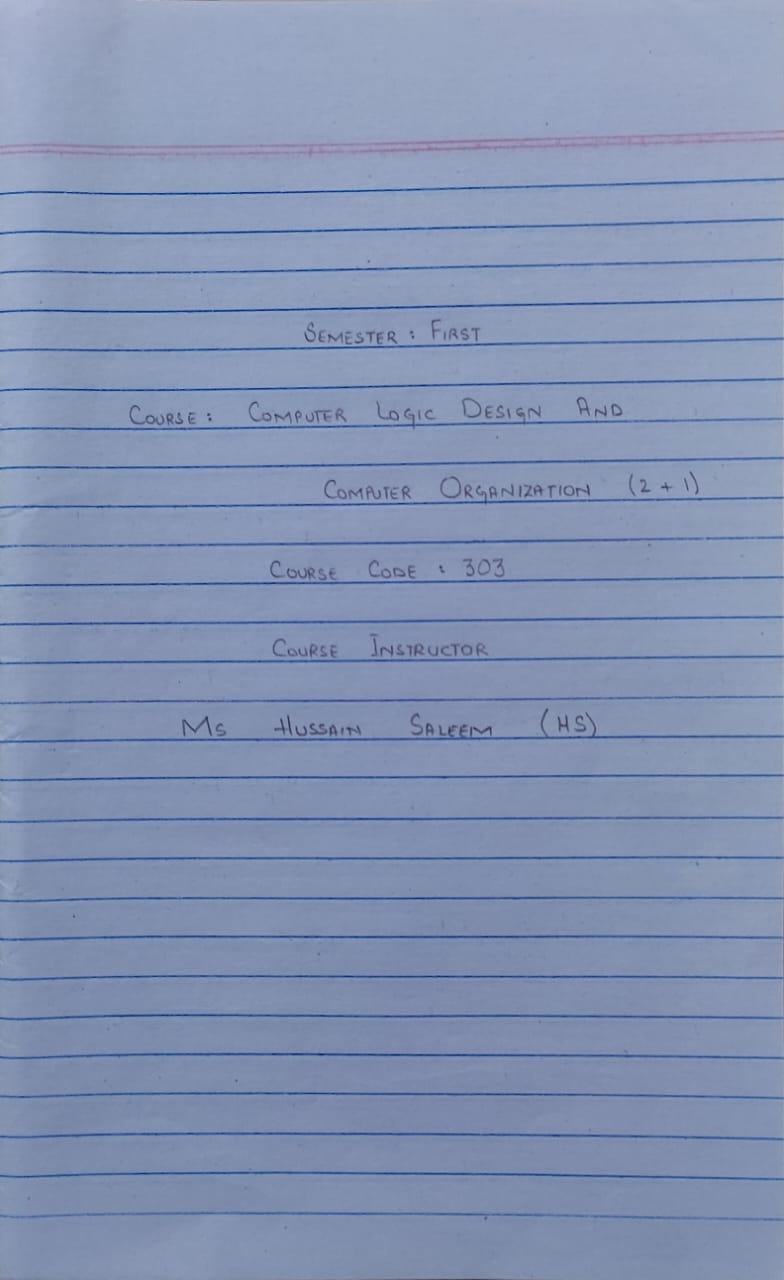 SEMESTER : FIRST
COURSE : COMPUTER LOGIC DESIGN AND
COMPUTER ORGANIZATION (2 + 1)
COURSE CODE : 303
COURSE INSTRUCTOR
MS HUSSAIN SALEEM (HS)